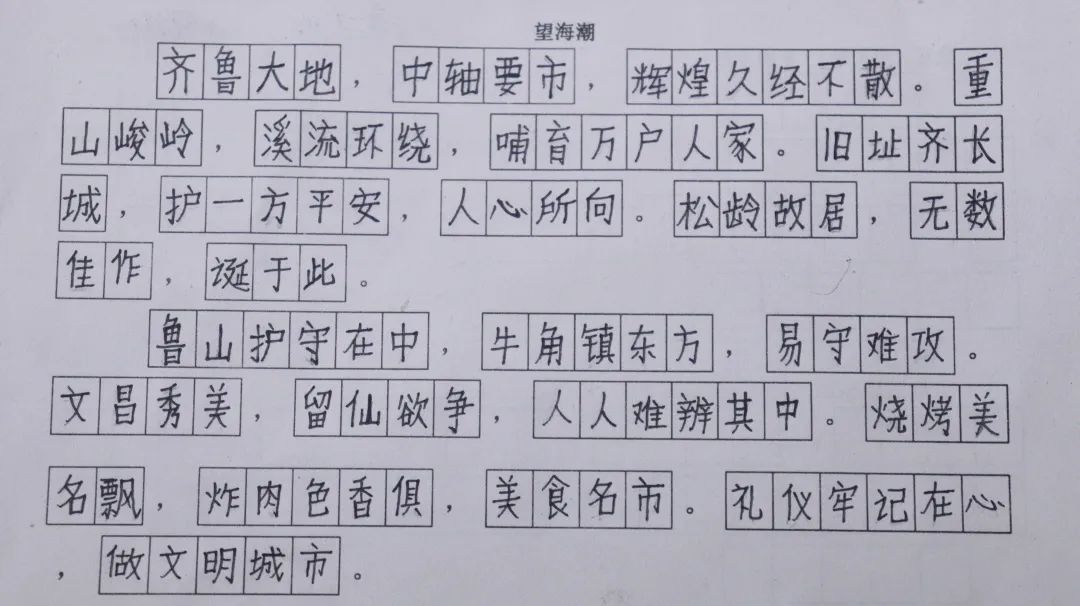 望海潮
齐鲁大地，中轴要市，辉煌久经不散。重
山峻岭，溪流环绕，哺育万户人家。旧址齐长
城，护一方平安，人心所向。松龄故居，无数
佳作，诞于此。
鲁山护守在中，牛角镇东方，易守难攻。
文昌秀美，留仙欲争，人人难辨其中。烧烤美
名飘，炸肉色香俱，美食名市。礼仪牢记在心
，做文明城市。